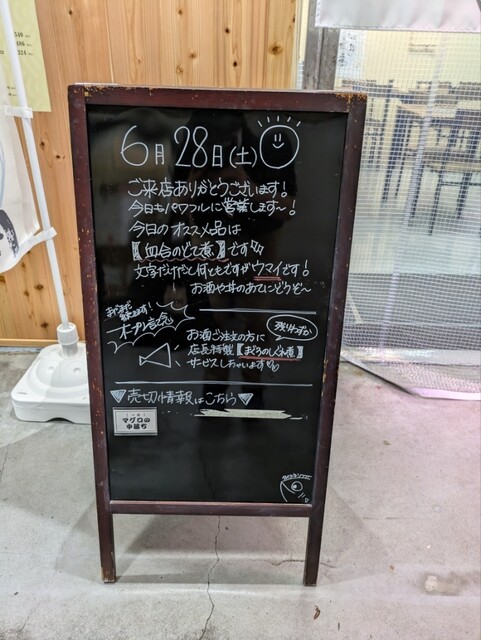 6月28日(土)
ご来店ありがとうございます!
今日もパワフルに営業します〜!
今日のオススメ品は
【血合のどて煮】です!!!
文字だけだと何ともですがウマイです!
お酒や丼のあてにどうぞ〜
まだまだ
オープン記念
残りわずか
お酒ご注文の方に
店長特製【まぐろのしぐれ煮】
サービスしちゃいます
▼売切情報はこちら▼
マグロの
中落ち